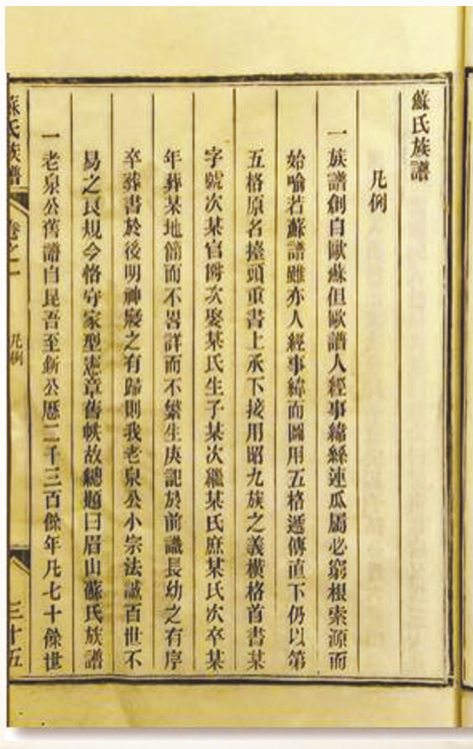 蘇氏族譜
凡例
一族譜創自歐蘇但歐譜人經事緯絲連瓜屬必窮根索源而
始喻若蘇譜雖亦人經事緯而圖用五格遞傳直下仍以第
五格原名擡頭重書上承下接用昭九族之義橫格首書某
字號次某官爵次娶某氏生子某次繼某氏庶某氏次卒某
年葬某地簡而不畧詳而不繁生庚記於前識長幼之有序
卒葬書於後明神凝之有歸則我老泉公小宗法誠百世不
易之良規今恪守家型憲章舊帙故總題曰眉山蘇氏族譜
一老泉公舊譜自昆吾至釿公歷二千三百餘年凡七十餘世
蘇氏族譜
卷之一
凡例
三十五